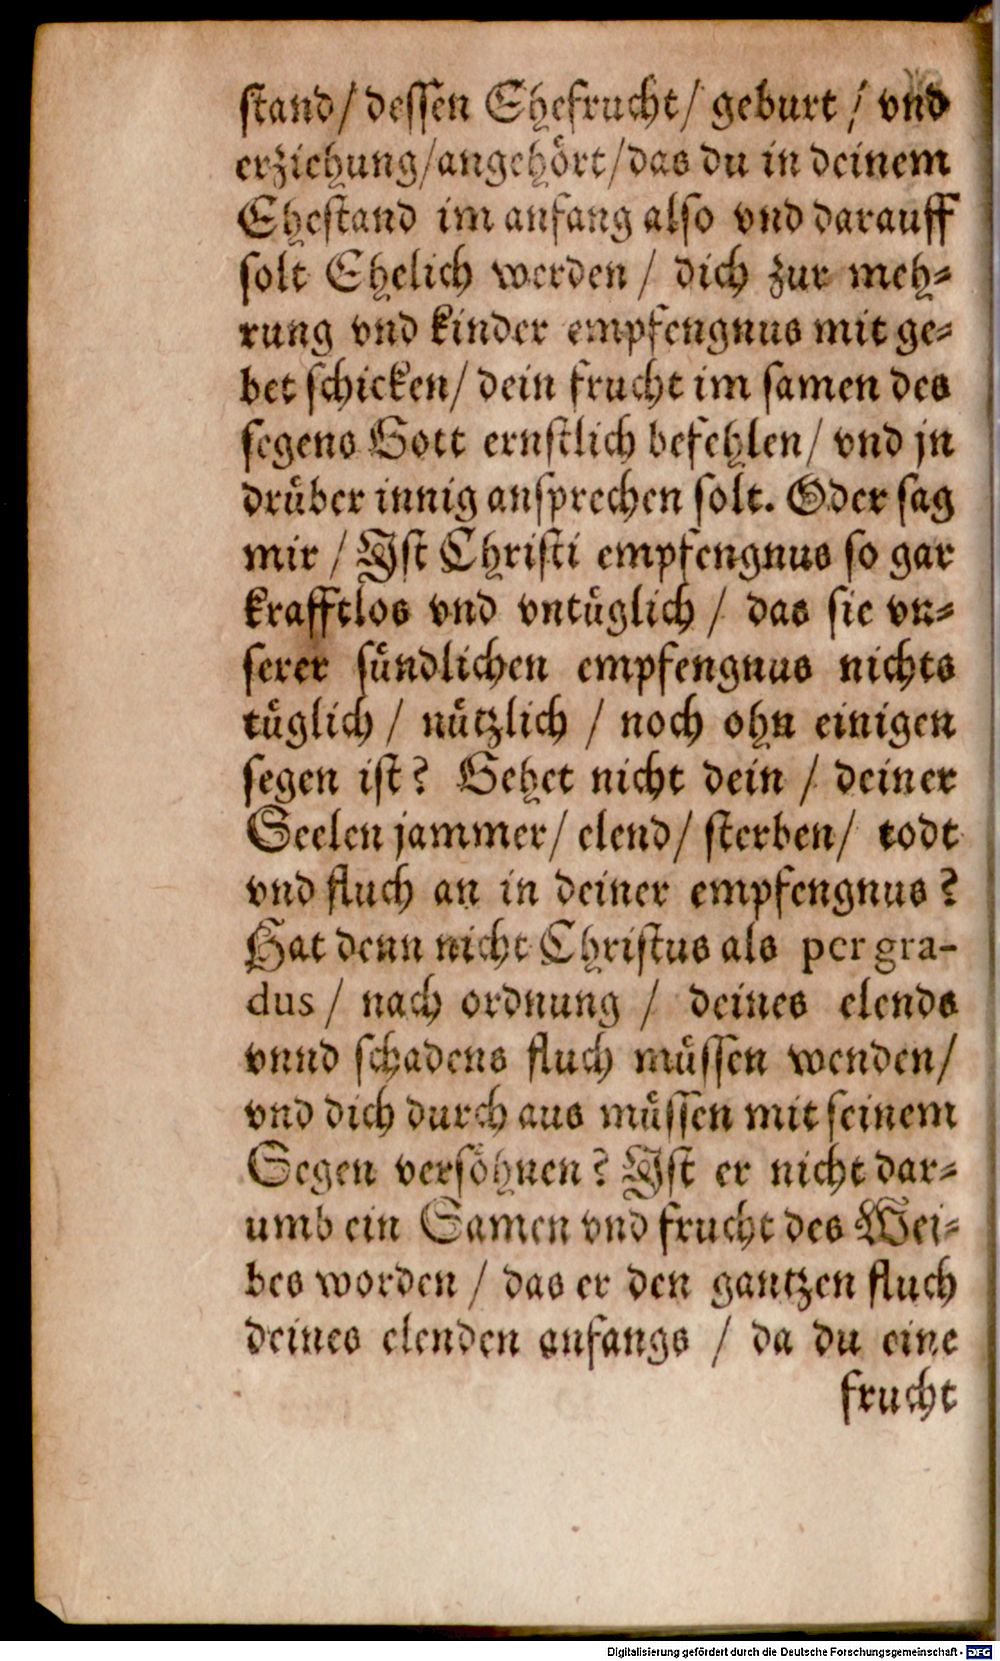 stand/ dessen Ehefrucht/ geburt / vnd
erziehung/angehört/das du in deinem
Ehestand im anfang also vnd darauff
solt Ehelich werden / dich zur meh-
rung vnd kinder empfengnus mit ge-
bet schicken/ dein frucht im samen des
segens Gott ernstlich befehlen/ vnd jn
drüber innig ansprechen solt. Oder sag
mir / Ist Christi empfengnus so gar
krafftlos vnd vntüglich / das sie vn-
serer sündlichen empfengnus nichts
tüglich / nützlich / noch ohn einigen
segen ist? Gehet nicht dein / deiner
Seelen jammer/ elend/ sterben/ todt
vnd fluch an in deiner empfengnus?
Hat denn nicht Christus als per gra-
dus / nach ordnung / deines elends
vnnd schadens fluch müssen wenden/
vnd dich durch aus müssen mit seinem
Segen versöhnen? Ist er nicht dar-
umb ein Samen vnd frucht des Wei-
bes worden / das er den gantzen fluch
deines elenden anfangs / da du eine
frucht
Digitalisierung gefördert durch die Deutsche Forschungsgemeinschaft - DFG